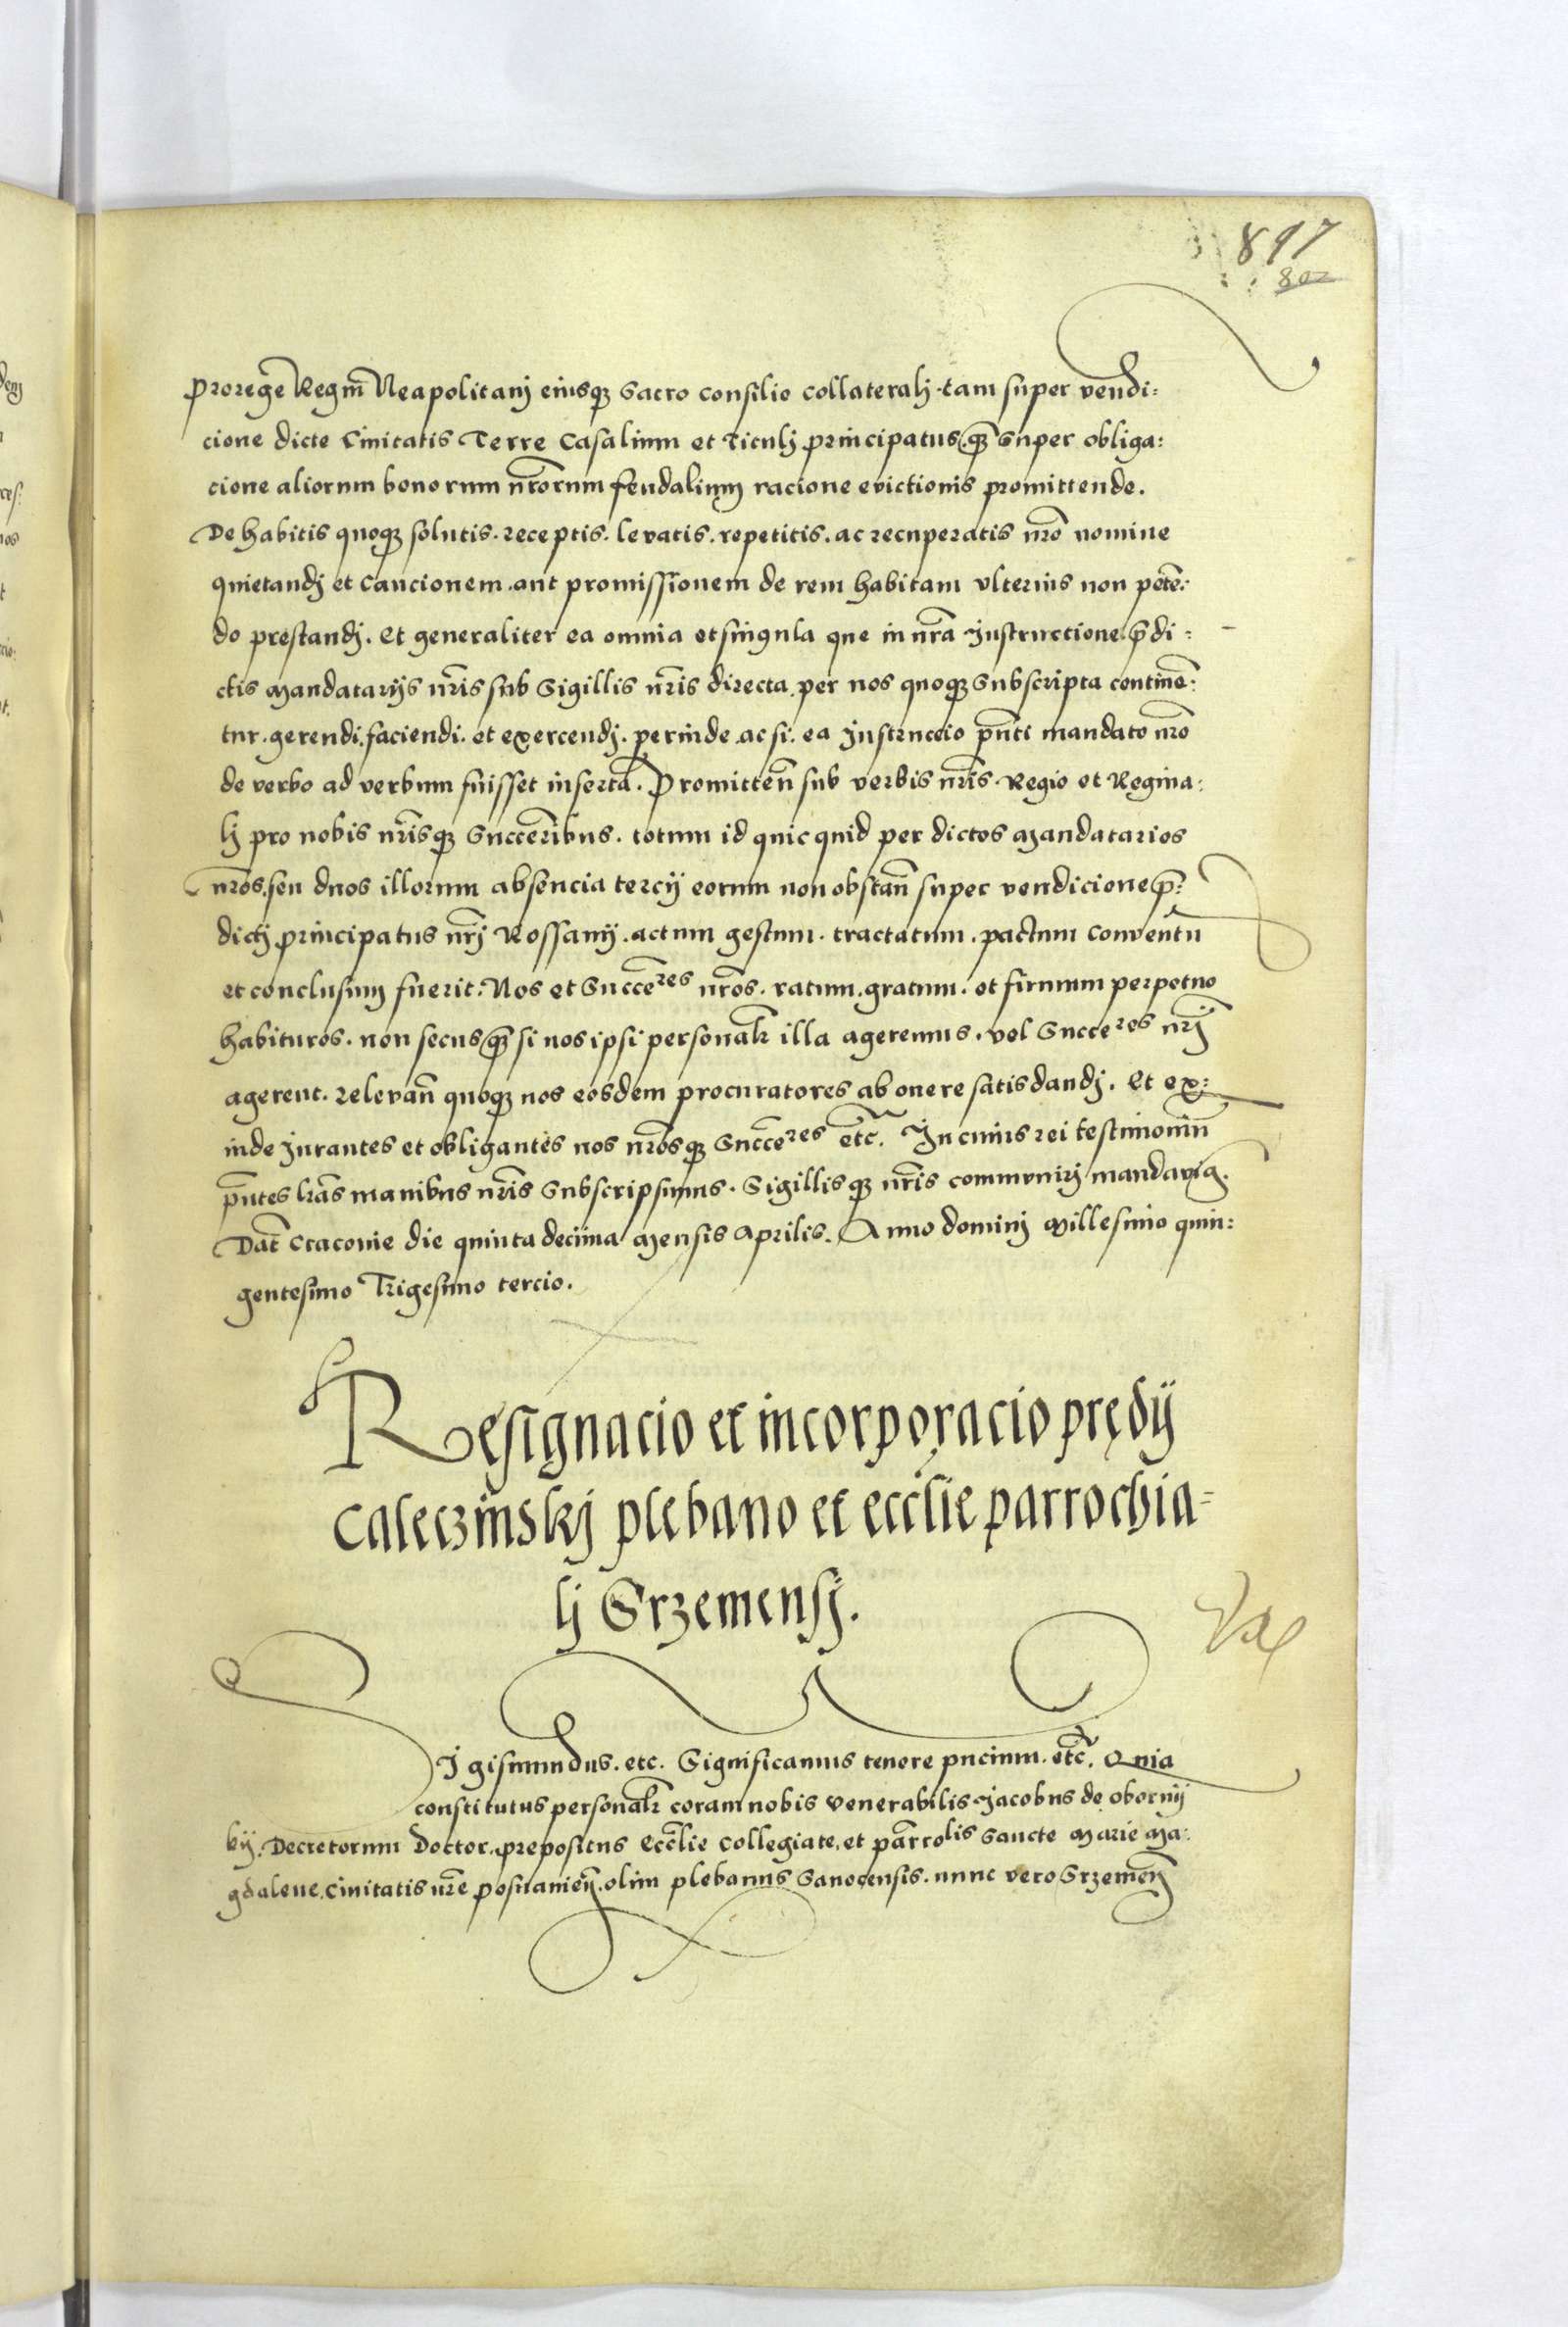 897
802
Proregẽ Regnĩ Neapolitanj eiusqȝ Sacro consilio collateralj. tam super vendi:
cione dicte Ciuitatis Terre Casalium et Titulj principatus. qȝ̃ super obliga:
cione aliorum bonorum nr̃orum feudalium racione evictionis promittende.
De habitis quoqȝ solutis. receptis. levatis. repetitis. ac recuperatis nr̃o nomine
quietandj et Caucionem. aut promissionem de rem habitam vlterius non petẽ:
do prestandj. Et generaliter ea omnia et singula que in nr̃a Instructione p̃di:
ctis Mandatarijs nr̃is sub Sigillis nr̃is directa. per nos quoqȝ Subscripta continẽ:
tur. gerendi. faciendi. et exercendj. perinde ac si. ea Instruccio pñti mandato nr̃o
de verbo ad verbum fuisset inserta. Promitteñ sub verbis nr̃is. Regio et Regina:
lj pro nobis nr̃isqȝ Succeribus. totum id quicquid per dictos Mandatarios
nr̃os. seu duos illorum absencia tercij eorum non obstañ super vendicione p̃:
dictj principatus nr̃j Rossanij. actum gestum. tractatum. pactum conventũ
et conclusum fuerit. Nos et Succeres nr̃os. ratum. gratum. et firmum perpetuo
habituros. non secus qȝ̃ si nos ipsi personalr̃ illa ageremus. vel Succeres nr̃j
agerent. relevañ quoqȝ nos eosdem procuratores ab onere satisdandj. Et ex:
inde Jurantes et obligantes nos nr̃osqȝ Succeres etc̃. In cuius rei testimoniũ
pñtes lr̃as manibus nr̃is Subscripsimus. Sigillisqȝ nr̃is communirj mandavimus.
Dat̃ Cracovie die quinta decima Mensis Aprilis. Anno dominj Millesimo quin:
gentesimo Trigesimo tercio.
Resignacio et incorporacio prędij
Caleczinskj plebano et eccl̃ie parrochia=
lj Srzemensj.
Sigismundus. etc. Significamus tenore pncium. etc̃. Quia
constitutus personalr̃ coram nobis venerabilis Jacobus de obornij
kij. Decretorum Doctor. prepositus Eccl̃ie Collegiate. et par̃rolis Sancte Marie Ma:
gdalene. Civitatis nr̃e posnanień. olim plebanus Sanocensis. nunc vero Srzemeñ